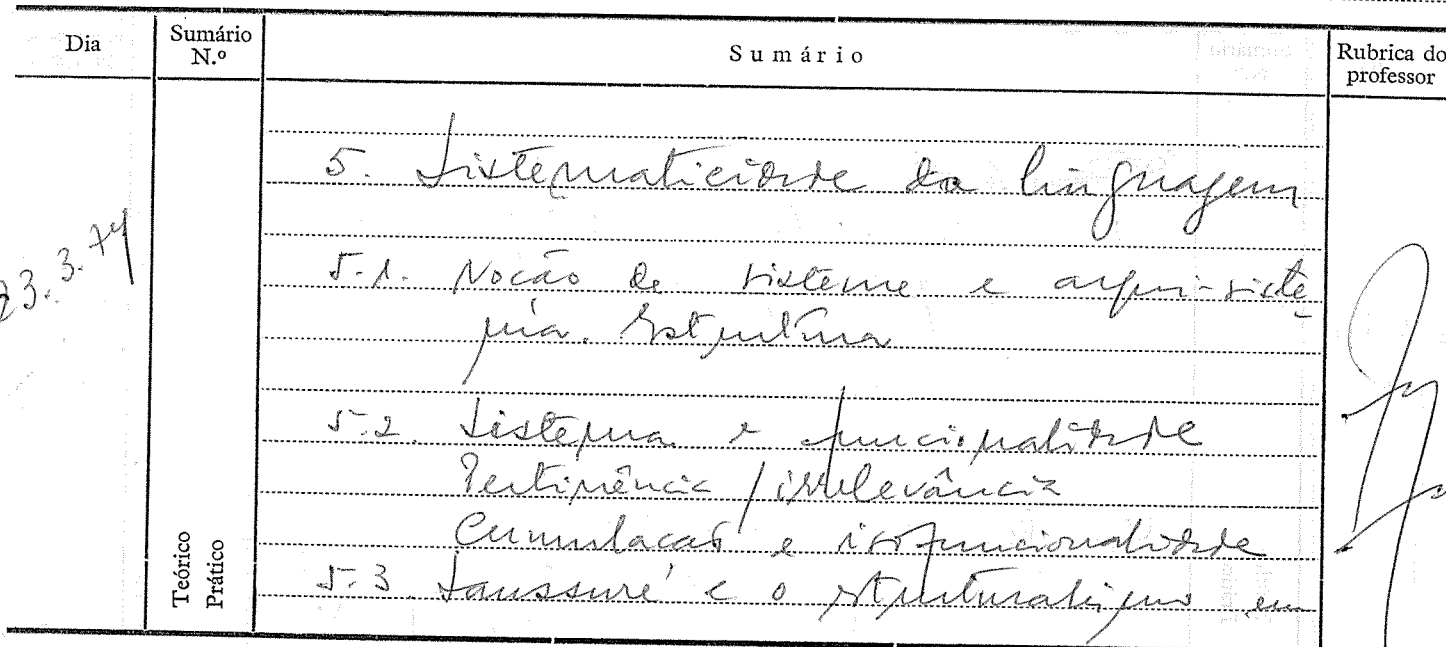 Dia
Sumário N.º
Sumário
Rubrica do professor
23.3.74
5. Sistematicidade da linguagem
5.1. Noção de sistema e arqui-siste-
ma. Estrutura
5.2. Sistema e funcionalidade
Pertinência / irrelevância
Cumulação e isofuncionalidade
5.3 Saussure e o estruturalismo em
Teórico
Prático